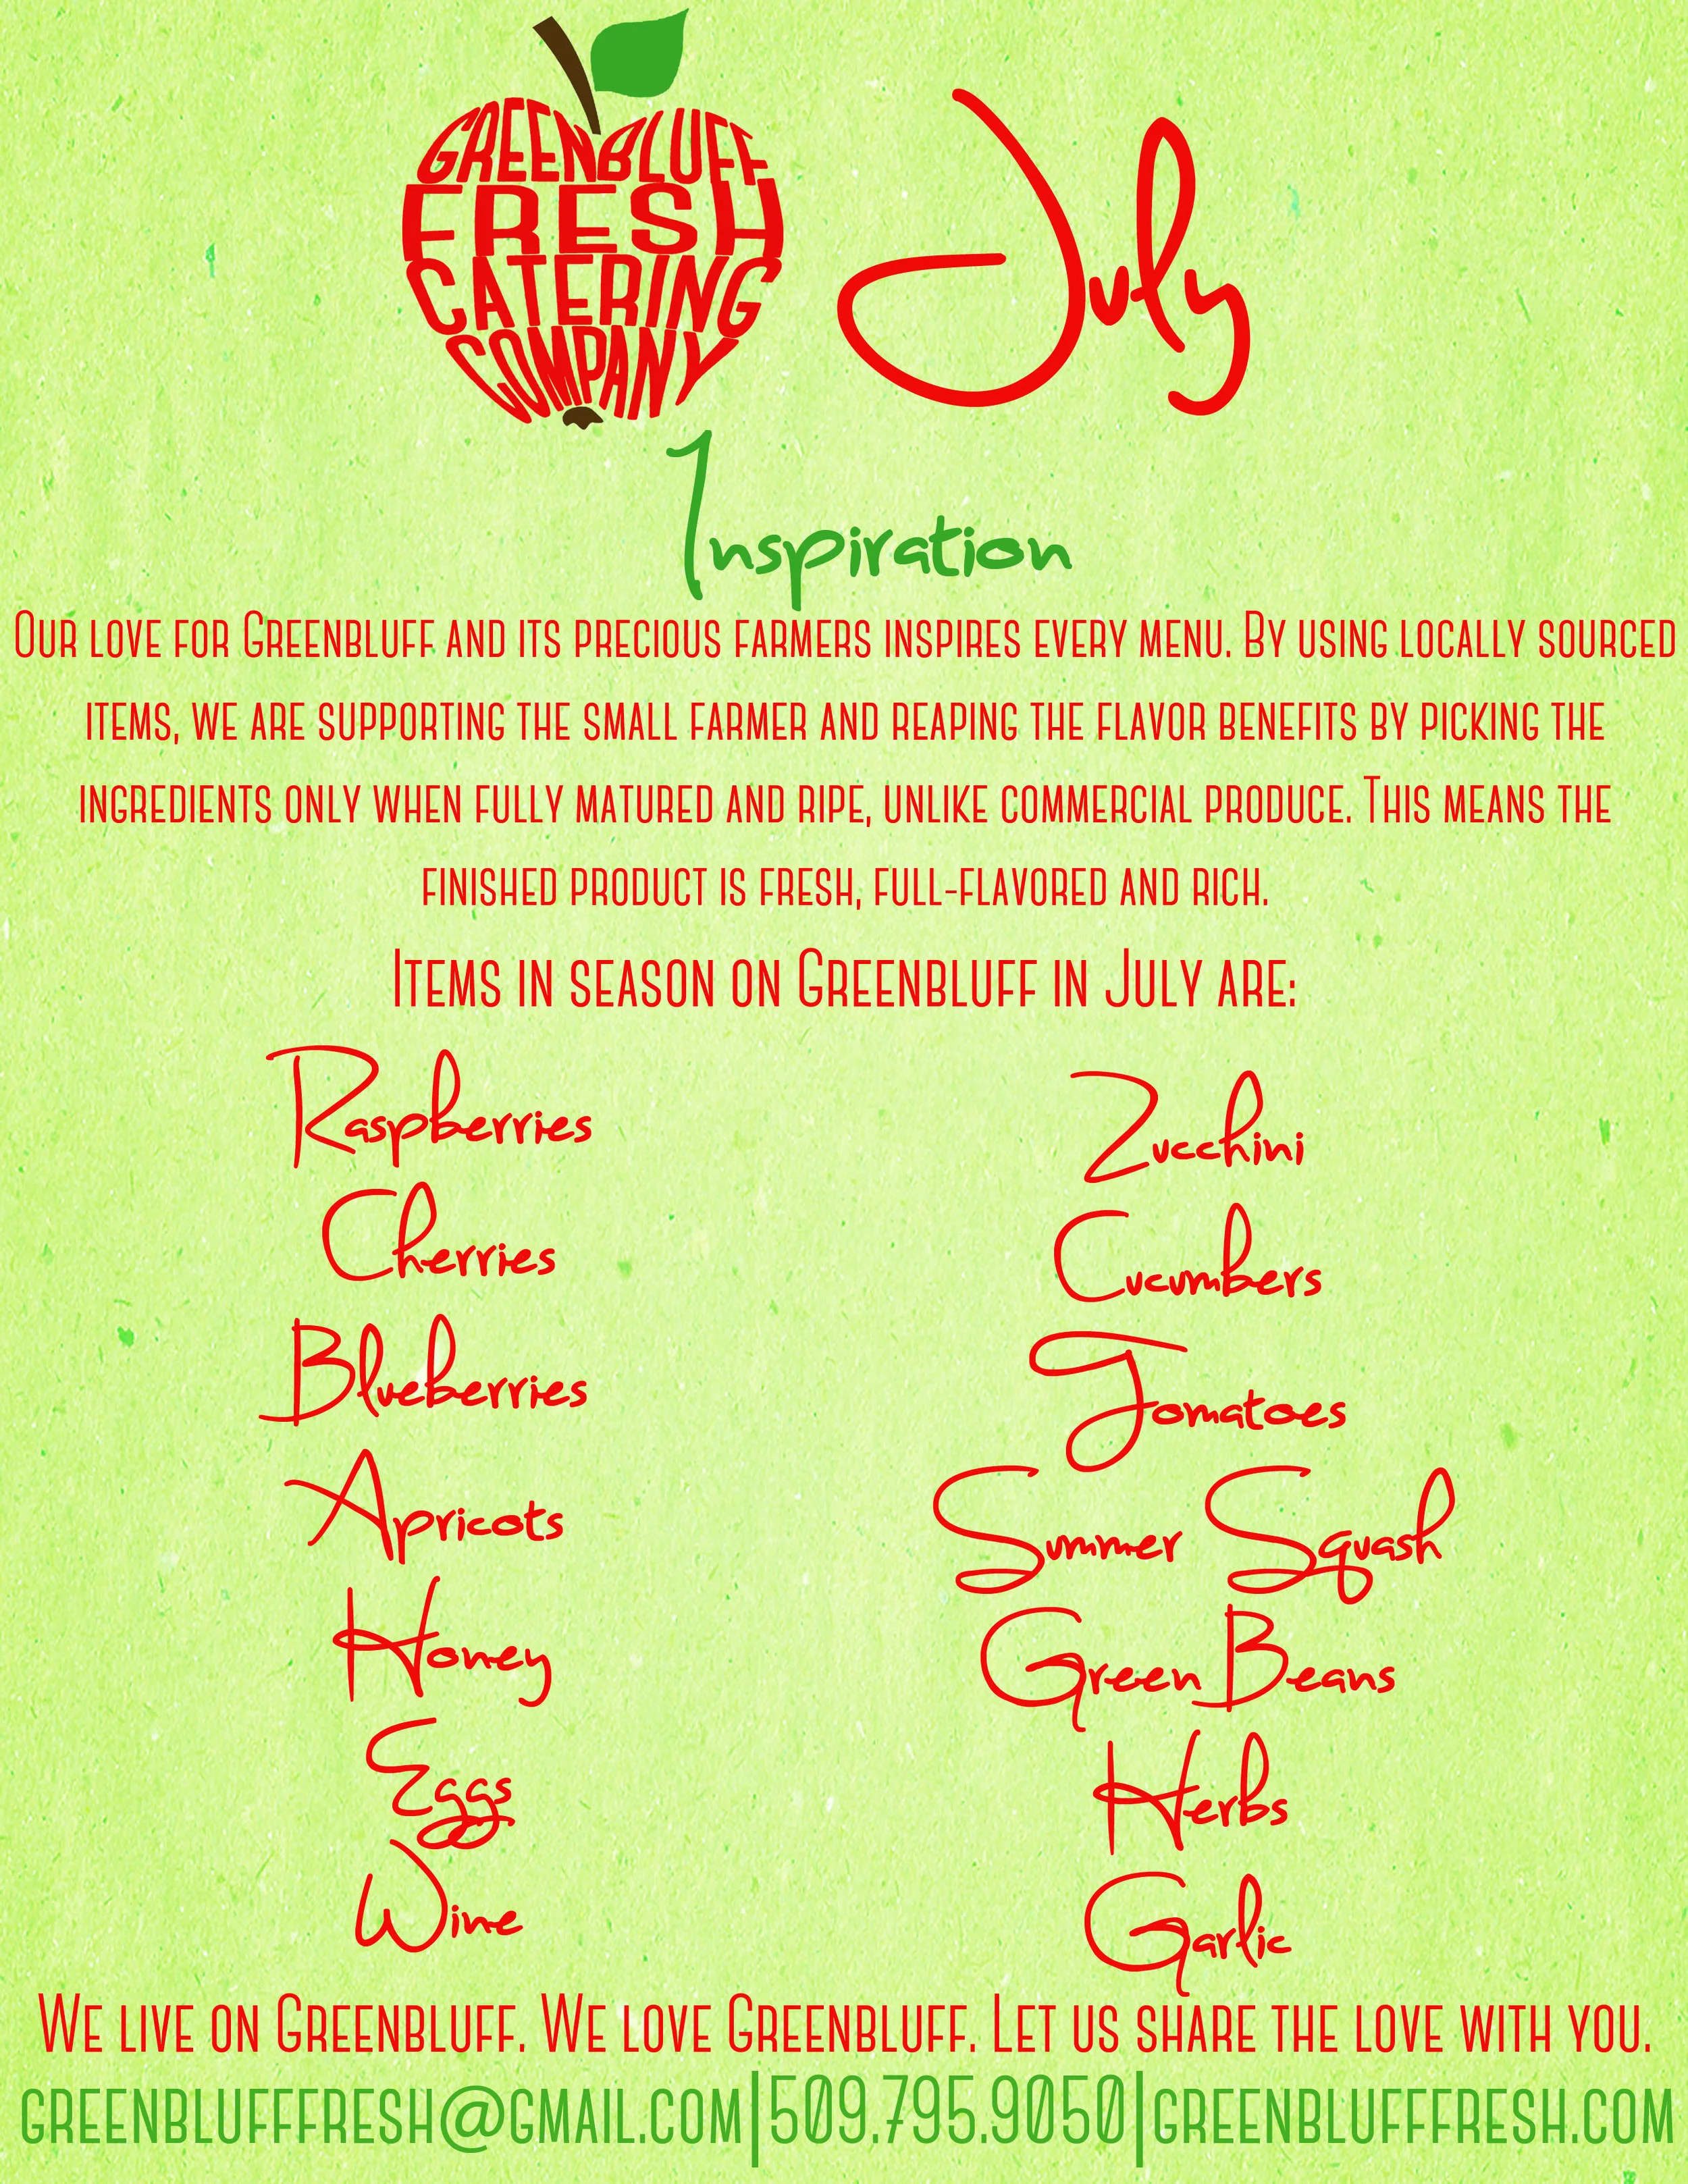 GREENBLUFF
FRESH
CATERING
COMPANY
July
Inspiration
Our love for Greenbluff and its precious farmers inspires every menu. By using locally sourced
items, we are supporting the small farmer and reaping the flavor benefits by picking the
ingredients only when fully matured and ripe, unlike commercial produce. This means the
finished product is fresh, full-flavored and rich.
Items in season on Greenbluff in July are:
Raspberries
Cherries
Blueberries
Apricots
Honey
Eggs
Wine
Zucchini
Cucumbers
Tomatoes
Summer Squash
Green Beans
Herbs
Garlic
We live on Greenbluff. We love Greenbluff. Let us share the love with you.
greenblufffresh@gmail.com|509.795.9050|greenblufffresh.com